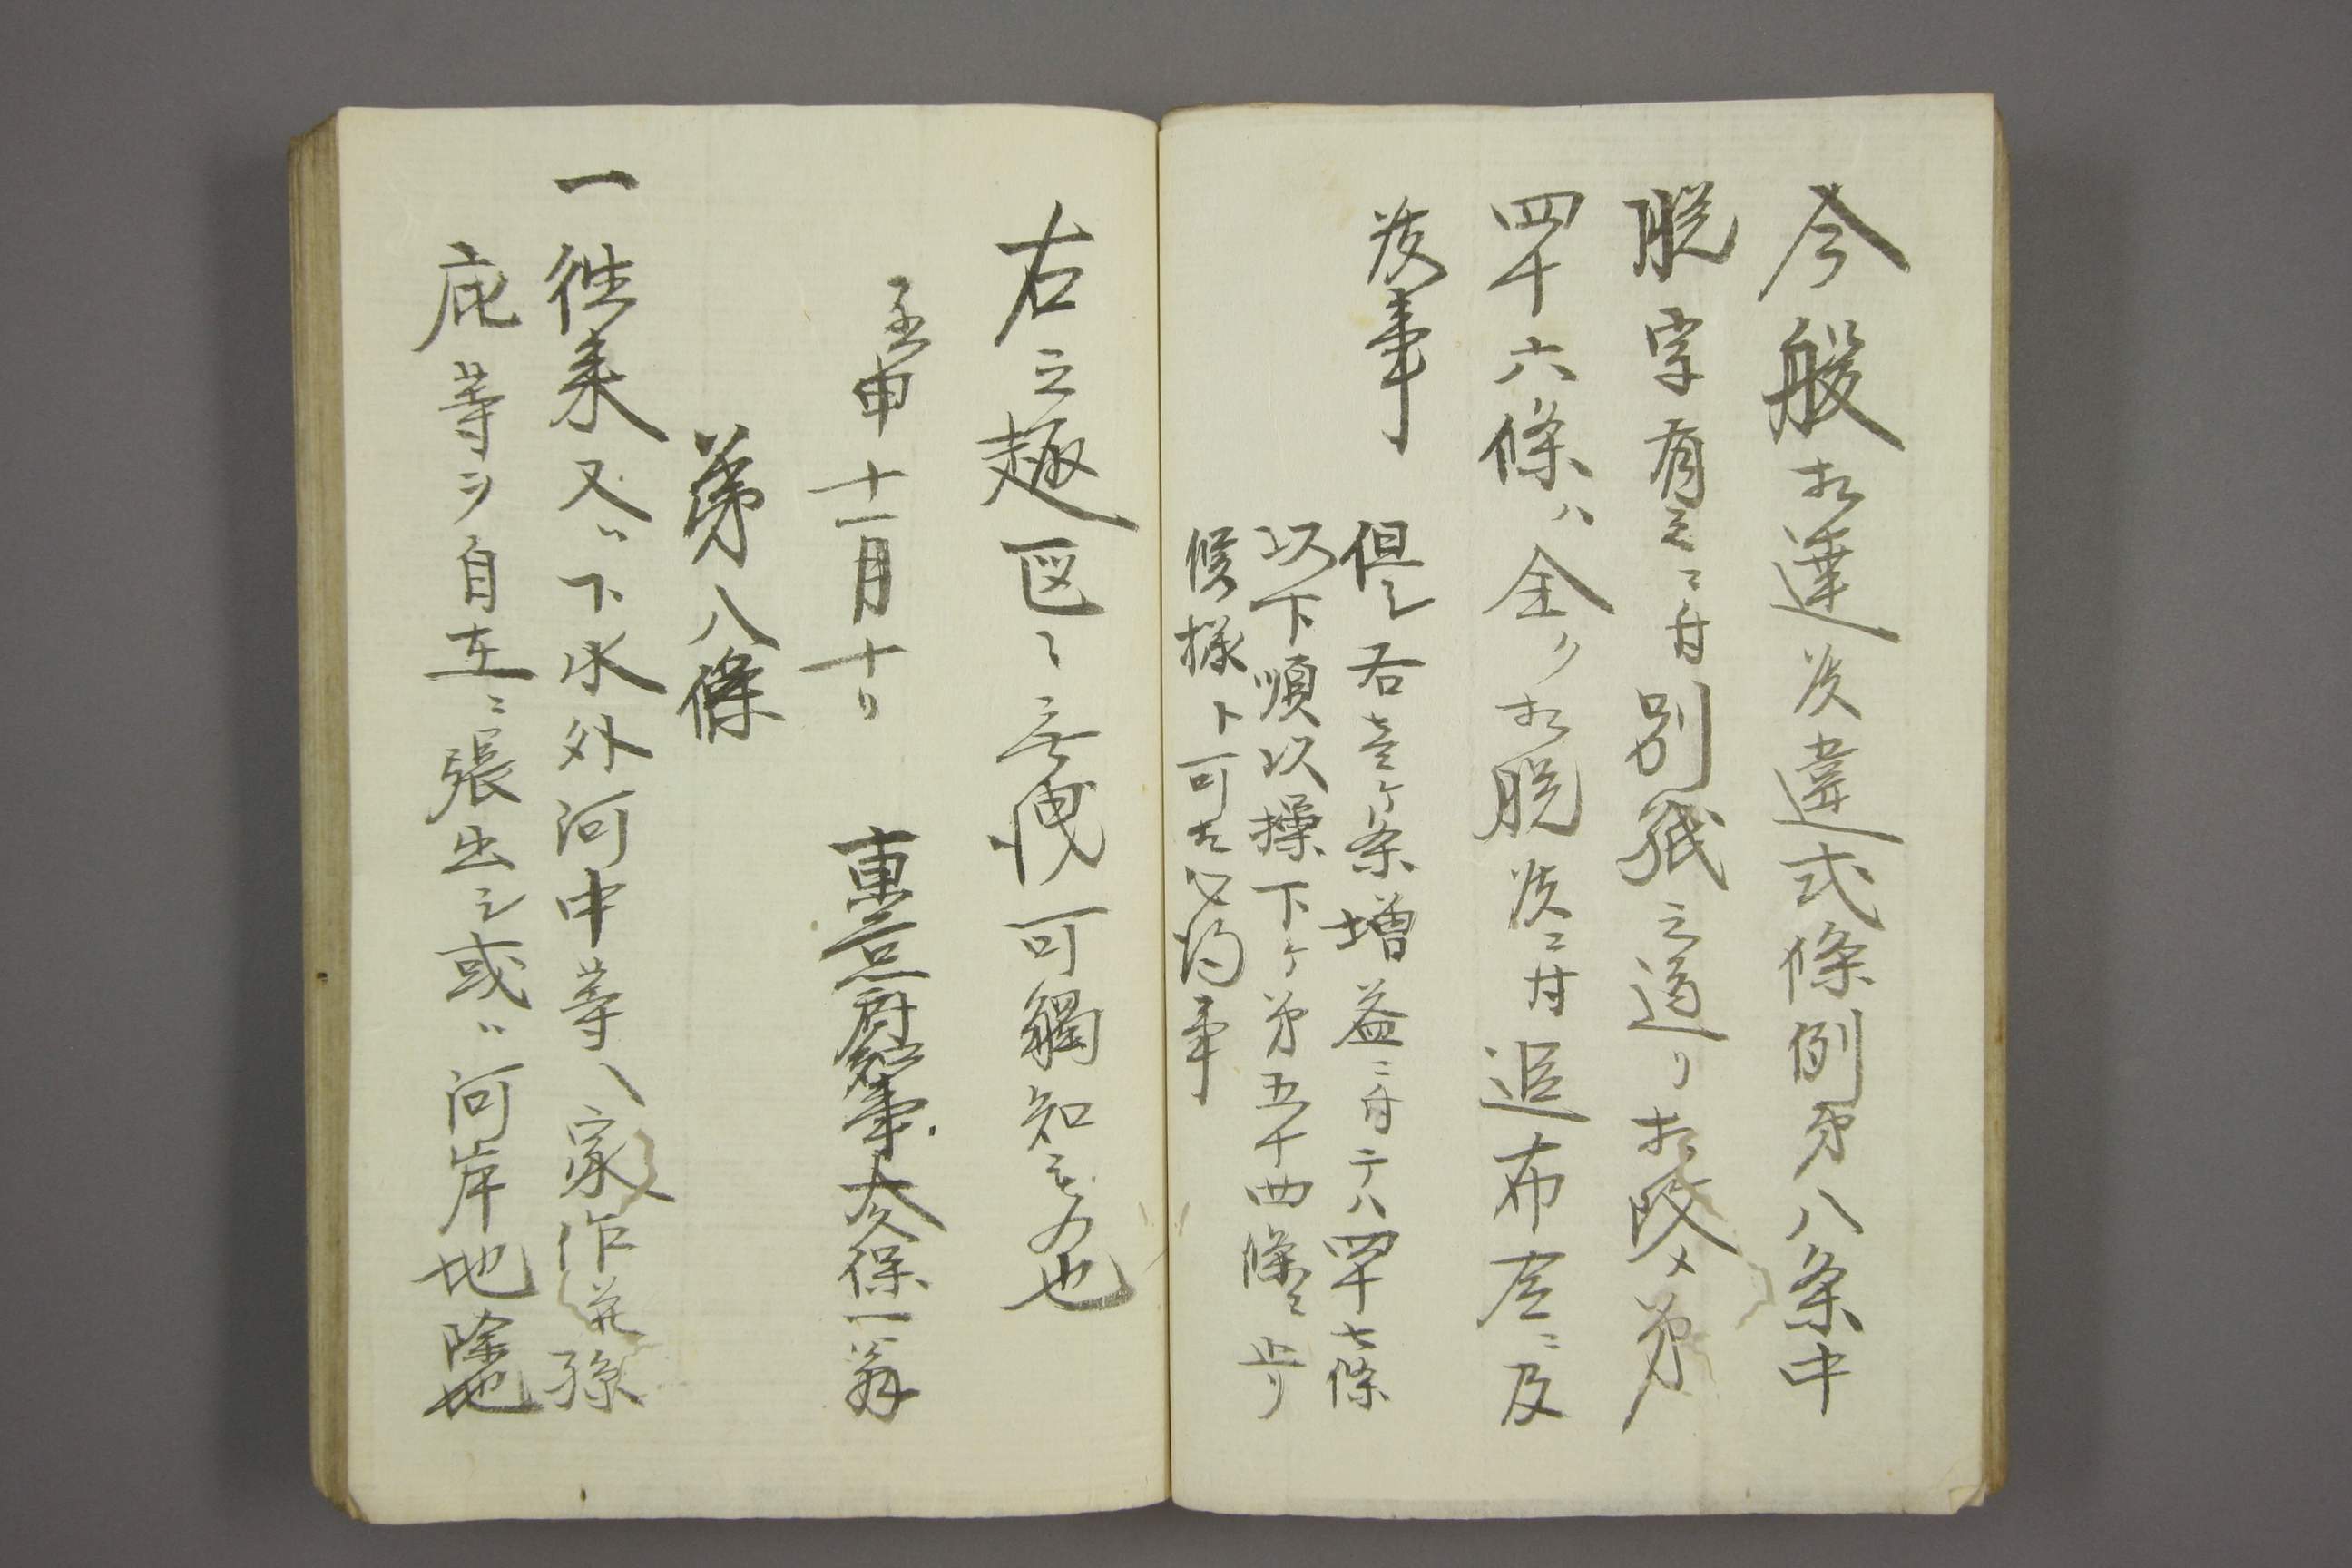 今般相達候違式條例第八条中
脱字有之ニ付別紙之通リ相改メ第
四十六條ハ全ク相脱候ニ付追布告ニ及
候事
但シ右壱ケ条増益ニ付テハ四十七條
以下順次操下ケ第五十四條ニ止リ
候様ト可相心得事
右之趣区々無洩可觸知もの也
壬申十一月十日
東京府知事大久保一翁
第八條
一往来又ハ下水外河中等ヘ家作並孫
庇等ヲ自在ニ張出シ或ハ河岸地除地